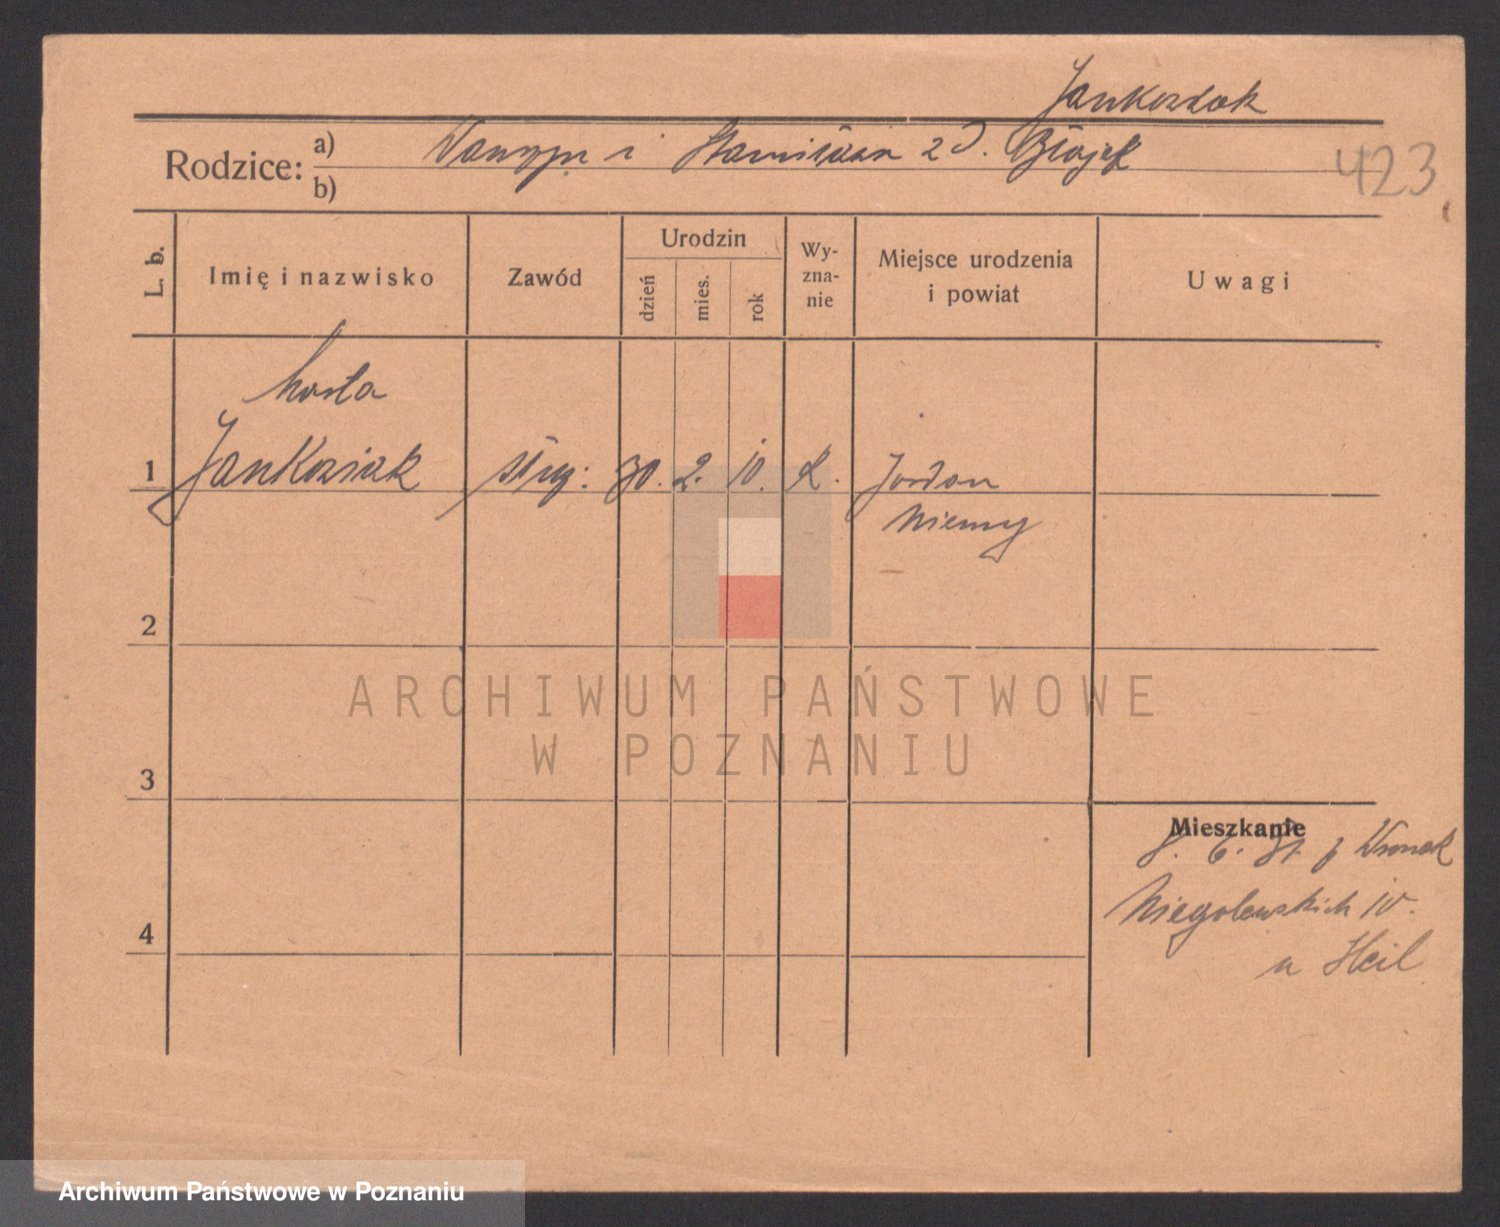 Jankoziak
Rodzice: a) Wawrzyn i Stanisława z d. Błajek
b)
423
L. b.
Imię i nazwisko
Zawód
Urodzin
dzień
mies.
rok
Wy-
zna-
nie
Miejsce urodzenia
i powiat
Uwagi
1 Jankoziak służ: 30. 2. 10. K. Jordan
Niemcy
2
3
4
Mieszkanie
z Wronek
Niegolewskich 10.
u Heil
ARCHIWUM PAŃSTWOWE
W POZNANIU
Archiwum Państwowe w Poznaniu